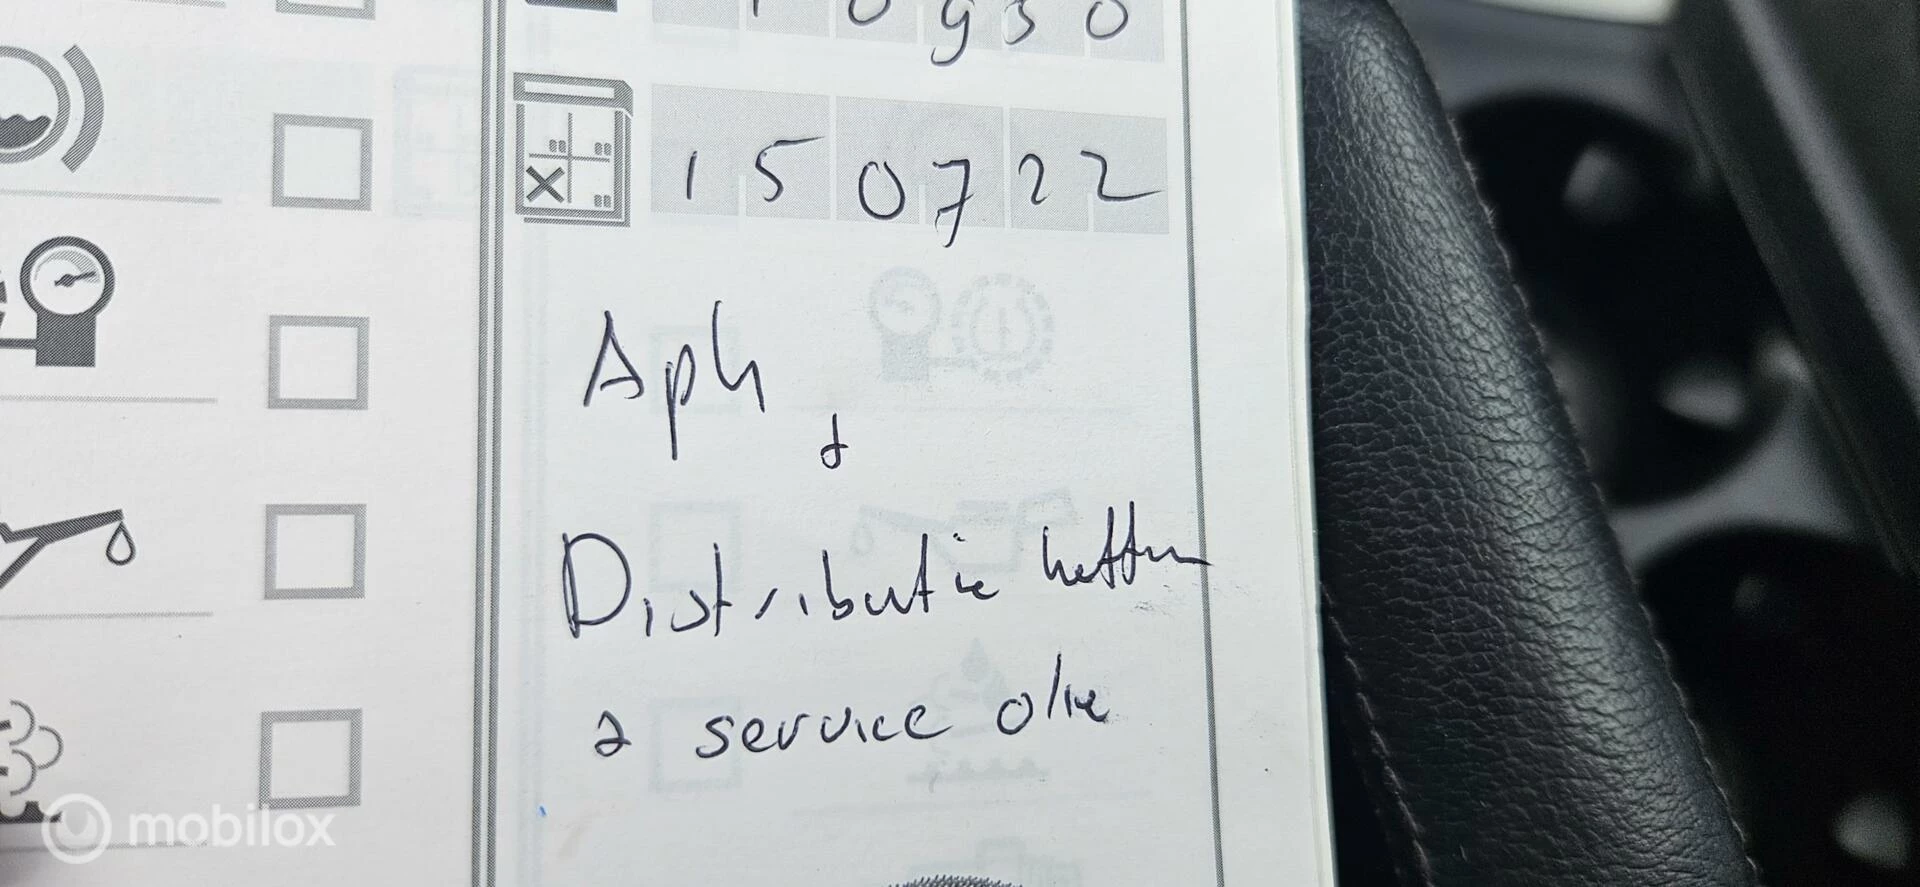 10930
150722
Apk
&
Distributie ketten
& service olie
mobilox